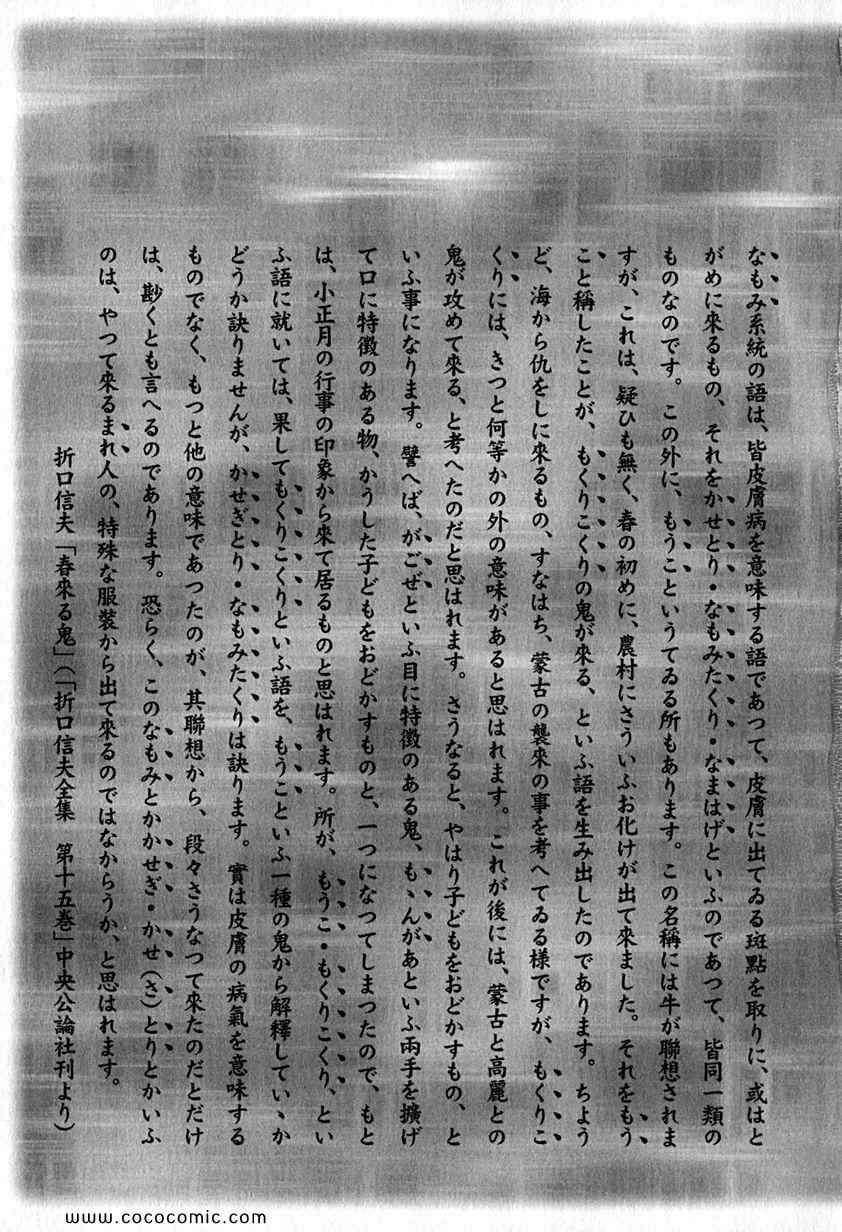 なもみ系統の語は、皆皮膚病を意味する語であつて、皮膚に出てゐる斑點を取りに、或はと
がめに來るもの、それをかせとり・なもみたくり・なまはげといふのであつて、皆同一類の
ものなのです。この外に、もうこというてゐる所もあります。この名稱には牛が聯想されま
すが、これは、疑ひも無く、春の初めに、農村にさういふお化けが出て來ました。それをもう
こと稱したことが、もくりこくりの鬼が來る、といふ語を生み出したのであります。ちよう
ど、海から仇をしに來るもの、すなはち、蒙古の襲來の事を考へてゐる樣ですが、もくりこ
くりには、きつと何等かの外の意味があると思はれます。これが後には、蒙古と高麗との
鬼が攻めて來る、と考へたのだと思はれます。さうなると、やはり子どもをおどかすもの、と
いふ事になります。譬へば、がごぜといふ目に特徴のある鬼、もゝんがあといふ兩手を擴げ
て口に特徴のある物、かうした子どもをおどかすものと、一つになつてしまつたので、もと
は、小正月の行事の印象から來て居るものと思はれます。所が、もうこ・もくりこくり、とい
ふ語に就いては、果してもくりこくりといふ語を、もうこといふ一種の鬼から解釋していゝか
どうか訣りませんが、かせぎとり・なもみたくりは訣ります。實は皮膚の病氣を意味する
ものでなく、もつと他の意味であつたのが、其聯想から、段々さうなつて來たのだとだけ
は、尠くとも言へるのであります。恐らく、このなもみとかかせぎ・かせ(さ)とりとかいふ
のは、やつて來るまれ人の、特殊な服裝から出て來るのではなからうか、と思はれます。
折口信夫「春來る鬼」(「折口信夫全集　第十五巻」中央公論社刊より)
www.cococomic.com